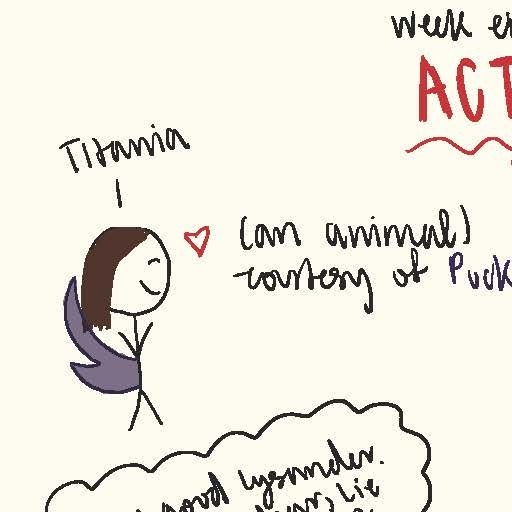 week
ACT
Titania
(an animal)
courtesy of Puck
good lysander.
lie